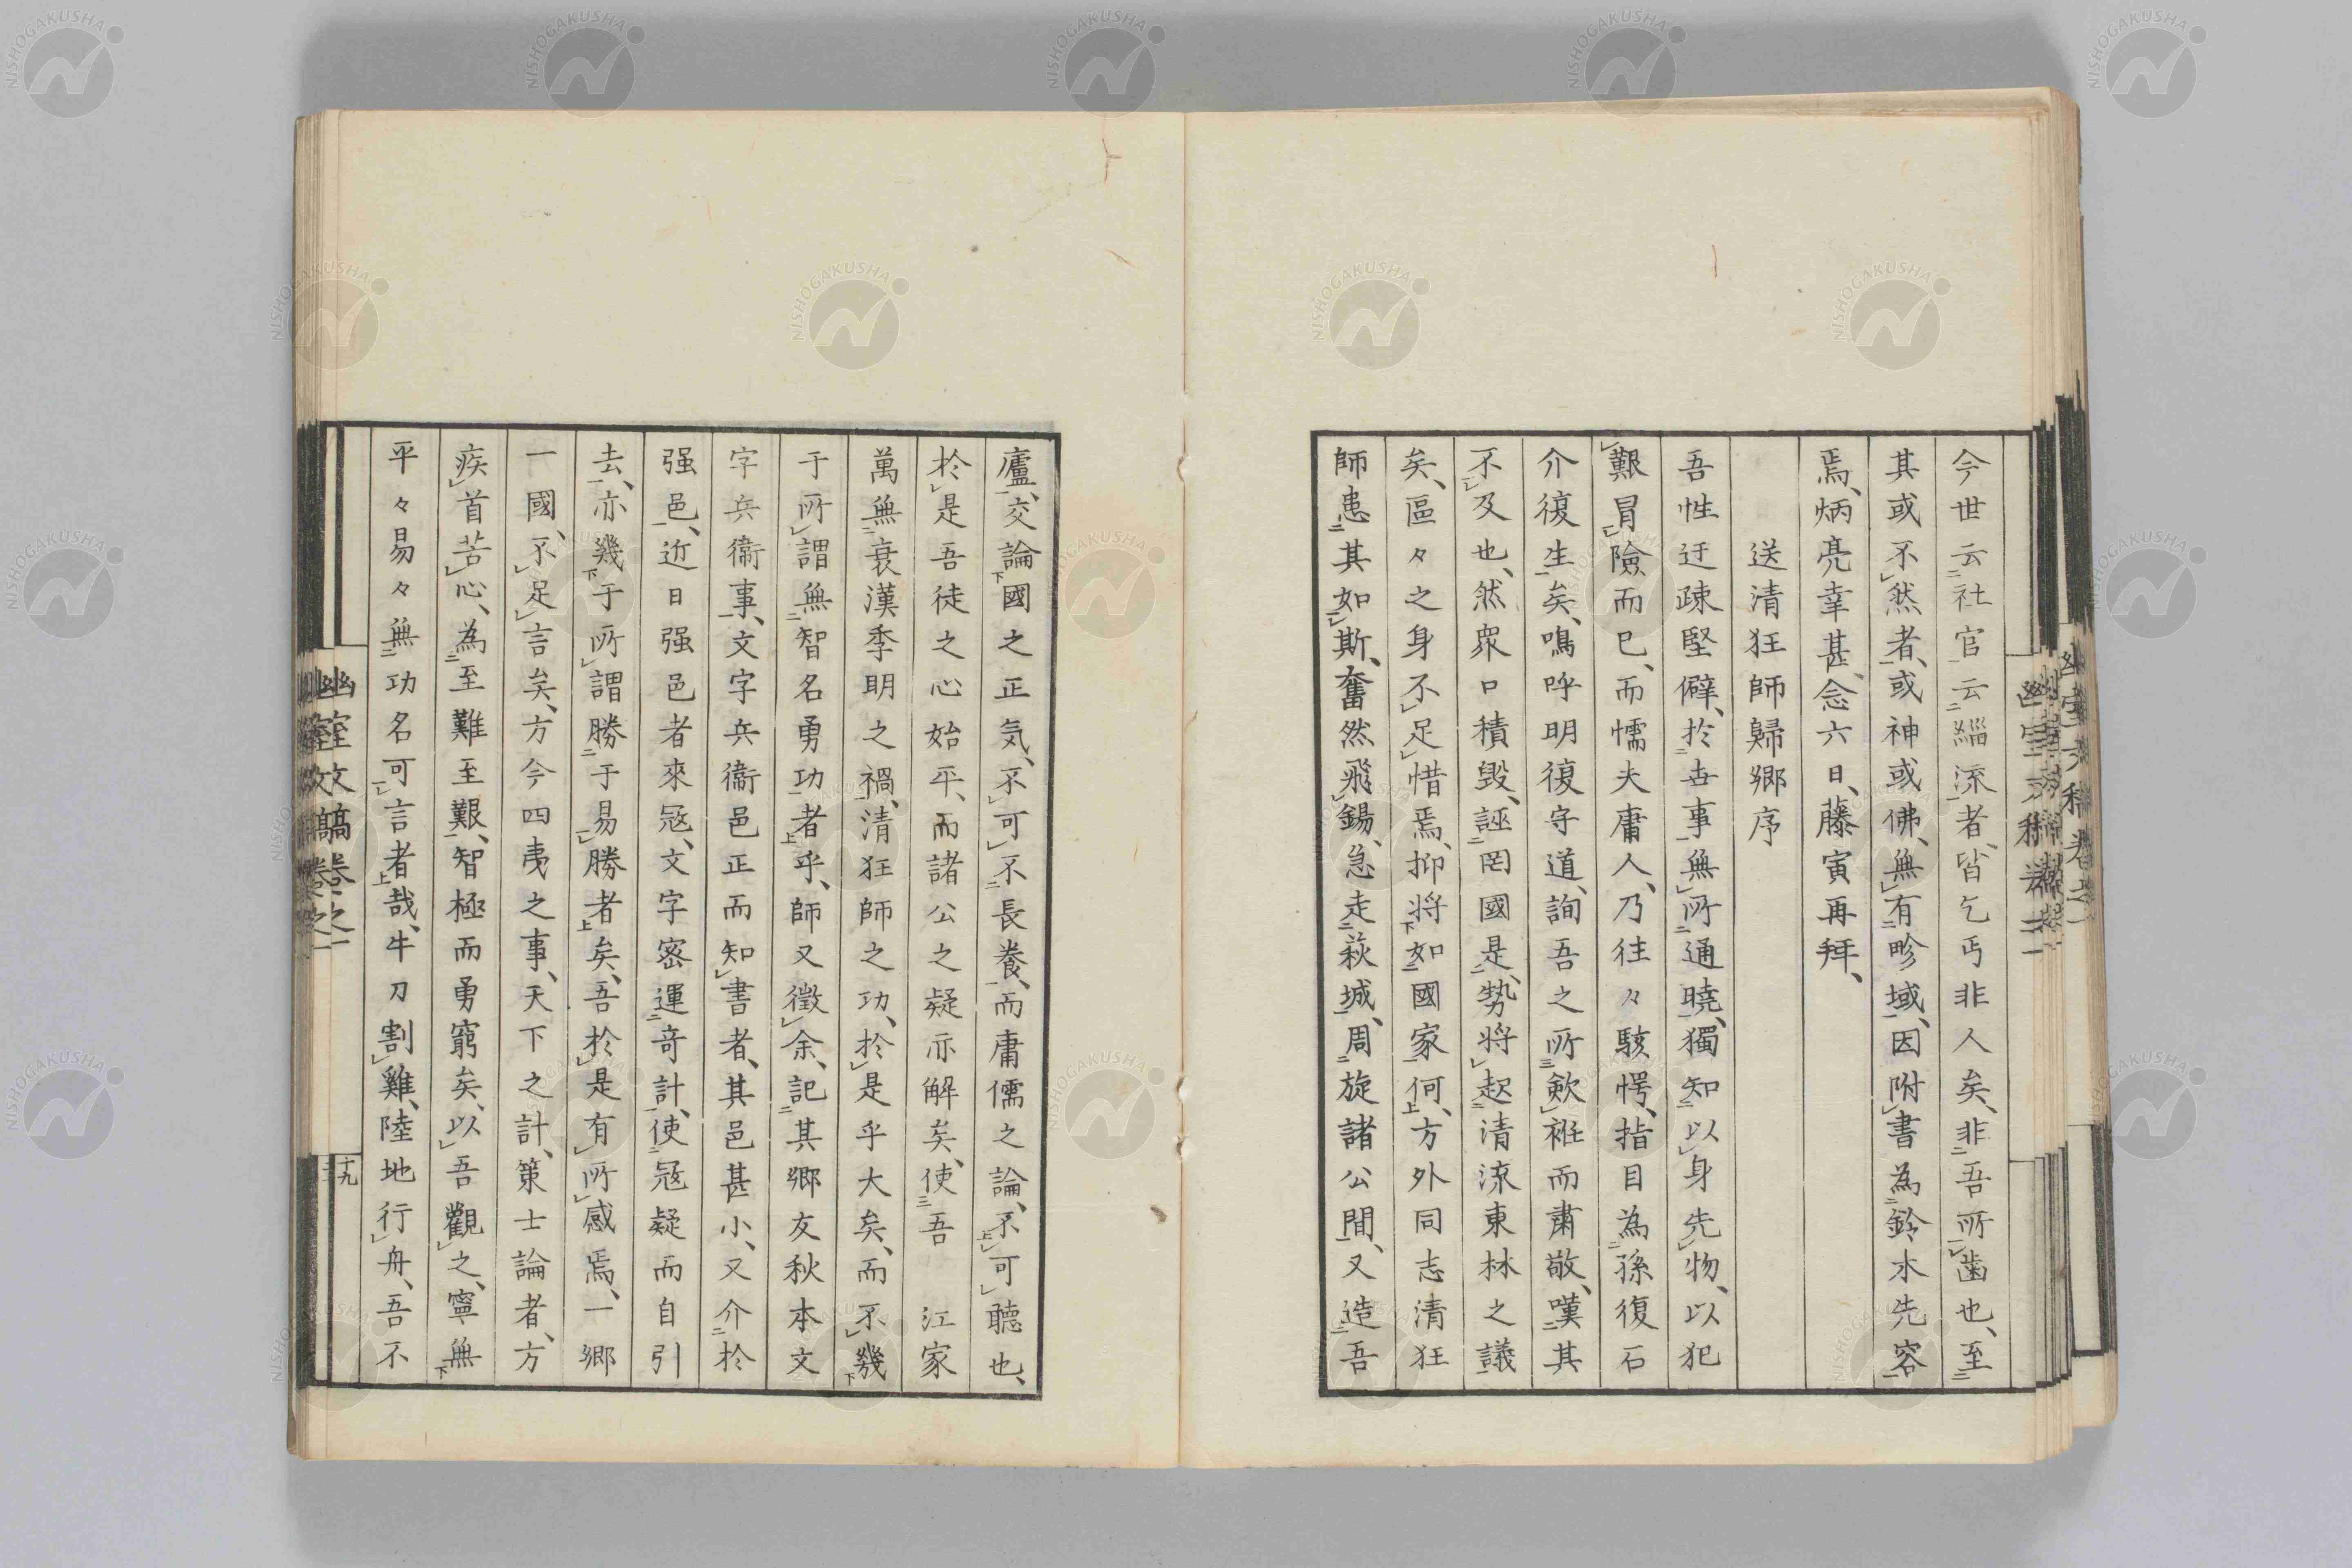 今世云社官云緇流者、皆乞丐非人矣、非吾所齒也、至
其或不然者、或神或佛、無有畛域、因附書為鈴木先容
焉、炳亮幸甚、念六日、藤寅再拜、
送清狂師歸鄉序
吾性迂疎堅僻、於世事無所通曉、獨知以身先物、以犯
艱冒險而已、而懦夫庸人、乃往々駭愕、指目為孫復石
介復生矣、鳴呼明復守道、詢吾之所歛衽而肅敬、嘆其
不及也、然衆口積毀、誣罔國是、勢將起清流東林之議
矣、區々之身不足惜焉、抑將如國家何、方外同志清狂
師患其如斯、奮然飛錫、急走萩城、周旋諸公間、又造吾
廬、交論國之正気、不可不長養、而庸儒之論、不可聽也、
於是吾徒之心始平、而諸公之疑亦解矣、使吾 江家
萬無衰漢季明之禍、清狂師之功、於是乎大矣、而不幾
于所謂無智名勇功者乎、師又徵余、記其鄉友秋本文
字兵衞事、文字兵衞邑正而知書者、其邑甚小、又介於
强邑、近日强邑者來寇、文字密運奇計、使寇疑而自引
去、亦幾于所謂勝于易勝者矣、吾於是有所感焉、一鄉
一國、不足言矣、方今四夷之事、天下之計、策士論者、方
疾首苦心、為至難至艱、智極而勇窮矣、以吾觀之、寧無
平々易々無功名可言者哉、牛刀割雞、陸地行舟、吾不
幽室文稿卷之一
十九